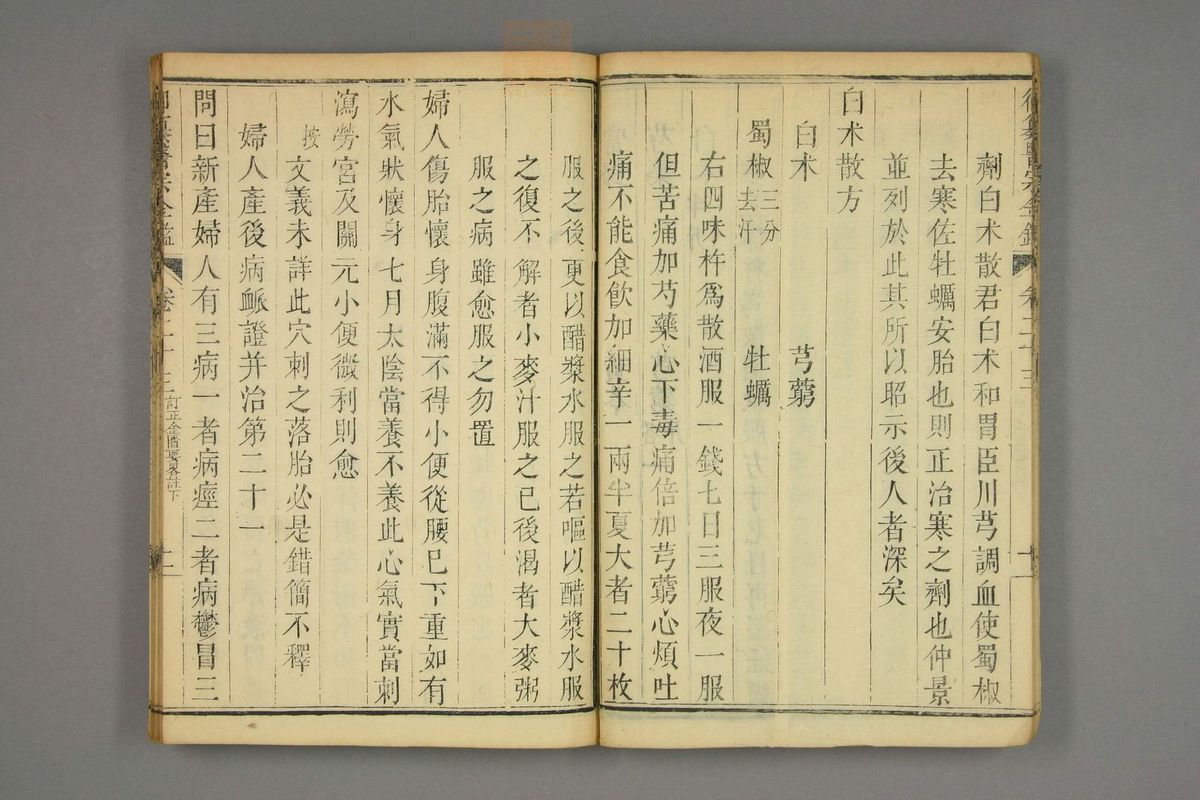 劑白朮散君白朮和胃臣川芎調血使蜀椒
去寒佐牡蠣安胎也則正治寒之劑也仲景
並列於此其所以昭示後人者深矣
白朮散方
白朮 芎藭
蜀椒三分去汗 牡蠣
右四味杵爲散酒服一錢七日三服夜一服
但苦痛加芍藥心下毒痛倍加芎藭心煩吐
痛不能食飲加細辛一兩半夏大者二十枚
服之後更以醋漿水服之若嘔以醋漿水服
之復不解者小麥汁服之已後渴者大麥粥
服之病雖愈服之勿置
婦人傷胎懷身腹滿不得小便從腰已下重如有
水氣狀懷身七月太陰當養不養此心氣實當刺
瀉勞宮及關元小便微利則愈
按文義未詳此穴刺之落胎必是錯簡不釋
婦人產後病脈證并治第二十一
問曰新產婦人有三病一者病痙二者病鬱冒三
卷二十三 訂正金匱要略註下